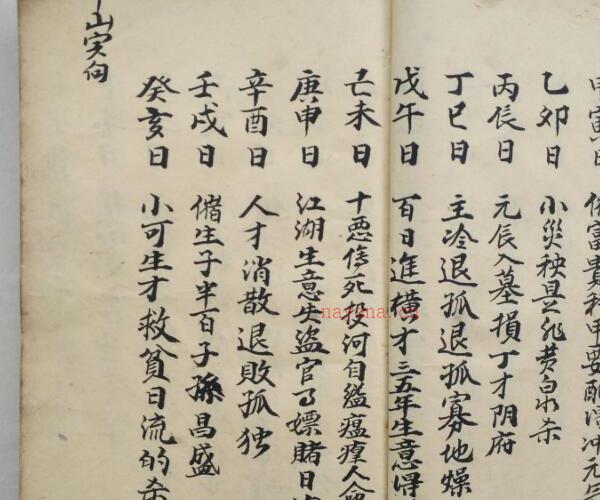 甲寅日 備富貴科甲要
乙卯日 小災秧是非黄白水杀
丙辰日 元辰入墓損丁才阴府
丁巳日 主冷退孤退孤寡地燥
戊午日 百日進横才三五年生意得
己未日 十惡傷死投河自缢瘟瘽人命
庚申日 江湖生意失盗官了嫖賭日
辛酉日 人才消散退敗孤独
壬戌日 備生子半百子孫昌盛
癸亥日 小可生才救貧日流的杀
山实向
nayona.cn